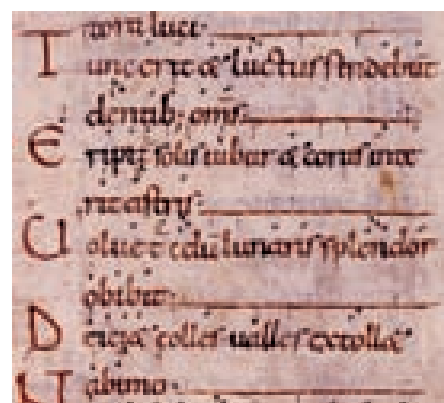 tora luci
Tunc erit & luctus stridebunt
dentib; om̄s
Eripit᷑ solis iubar & corus inte
rit astris
Uoluet᷑ celū lunaris splendor
obibit
Deici& colles ualles extoll&
abimo